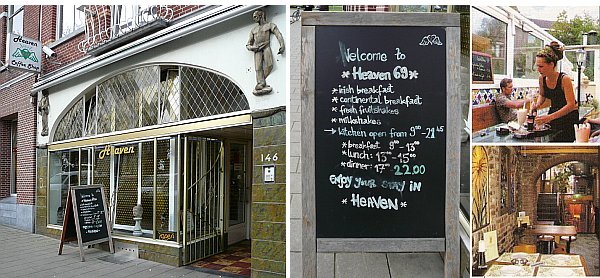 Heaven
Coffee Shop
Heaven
146
open
Welcome to
* Heaven 69 *
* irish breakfast
* continental breakfast
* fresh fruitshakes
* milkshakes
→ kitchen open from 9:00-21:45
* breakfast 9:00-13:00
* lunch: 13:00-15:00
* dinner: 17:00 22.00
ENJOY YOUR STAY IN
* HEAVEN *